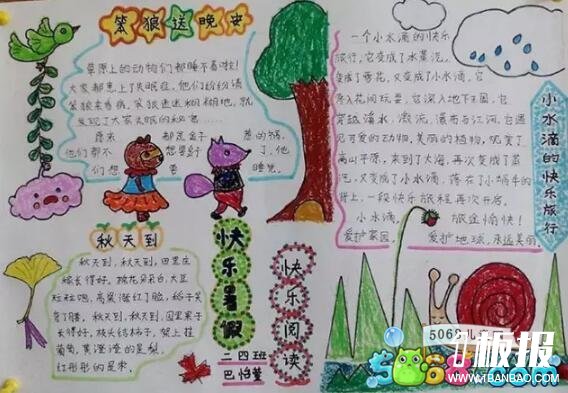 笨狼送晚安
草原上的动物们都睡不着啦!
大家都患上了失眠症。他们纷纷请
笨狼来看病,笨狼迷迷糊糊地,就
发现了大家失眠的秘密
原来 都是盒子 惹的祸。
他们都不 想要 了,他
们想 睡觉。
秋天到
秋天到,秋天到,田里庄
稼长得好。棉花朵朵白,大豆
粒粒饱,高粱涨红了脸,稻子笑
弯了腰。秋天到,秋天到,园里果子
长得好。枝头结柿子,架上挂
葡萄,黄澄澄的是梨。
红彤彤的是枣。
快乐暑假
快乐阅读
二四班
巴怡萱
一个小水滴的快乐
旅行,它变成了水蒸汽。
变成了雪花,又变成了小水滴。它
花间玩耍,它深入地下王国,它
穿越潜水、激流、瀑布与江河。它遇
见可爱的动物,美丽的植物,
高山平原,来到了大海,再次变成了蒸
汽,又变成了小水滴,落在了小蜗牛的
背上,一段快乐旅程再次开启。
小水滴, 旅途愉快!
爱护家园, 爱护地球,永远美丽。
小水滴的快乐旅行
5068儿童
板报
5068.com
WWW.TBANBAO.COM